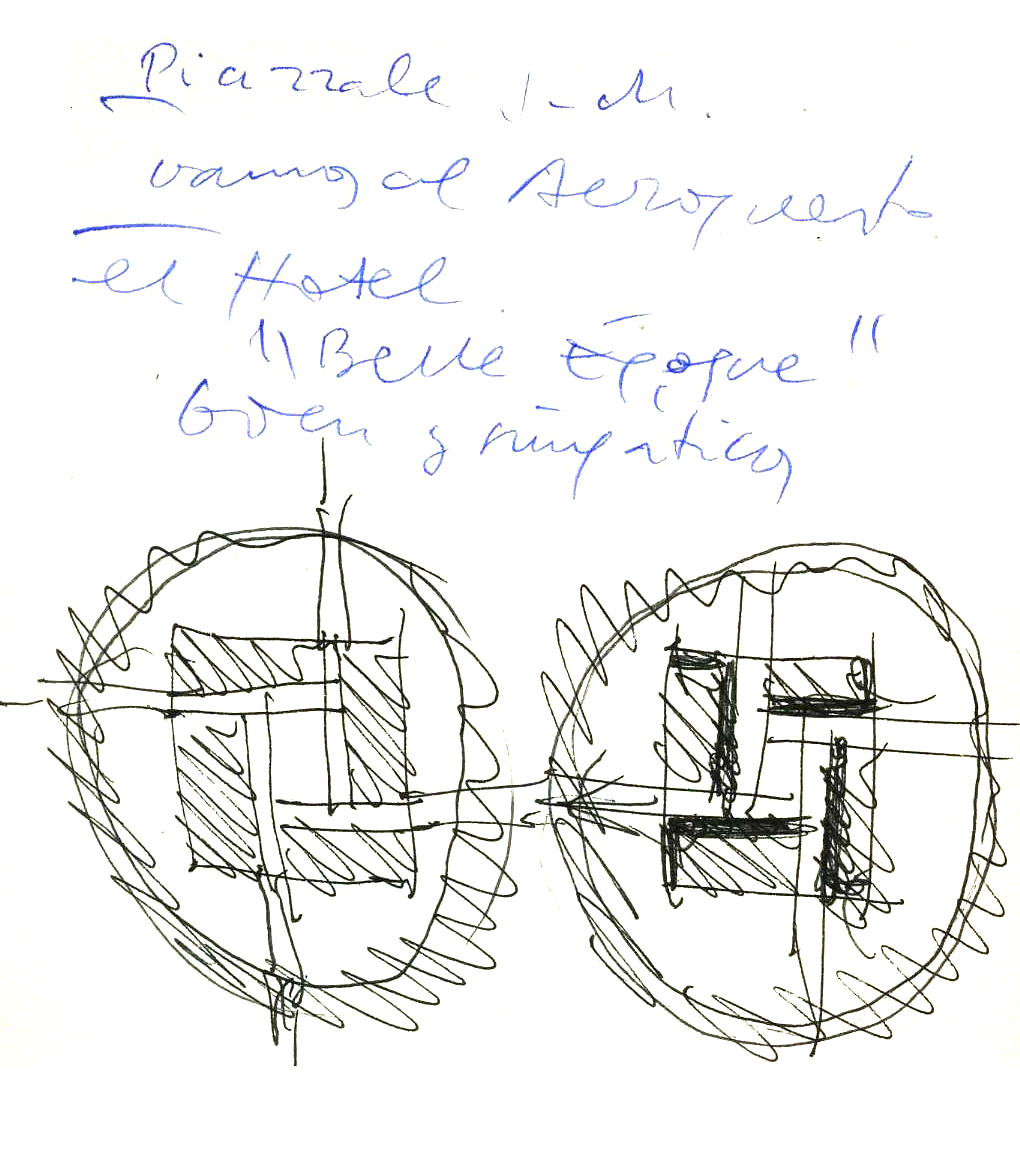 Piazzale
vamos al Aeropuerto
el Hotel
"Belle Époque"
Buen y simpático